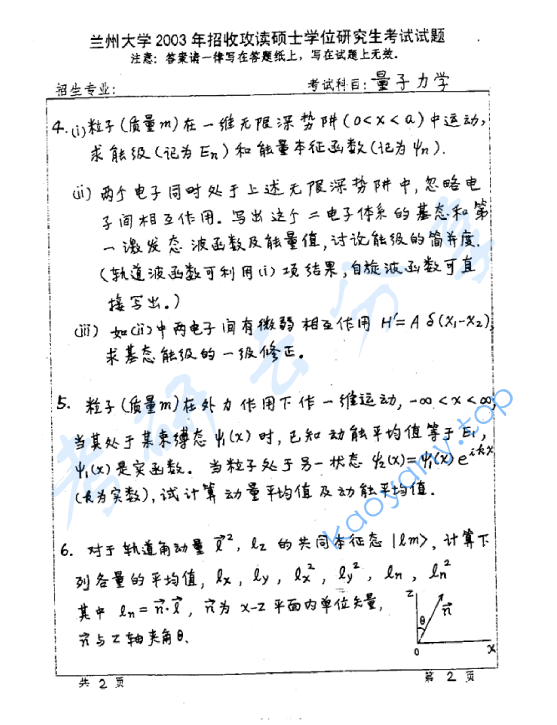 兰州大学2003年招收攻读硕士学位研究生考试试题
注意：答案请一律写在答题纸上，写在试题上无效。
招生专业：
考试科目：量子力学
4.(i)粒子(质量m)在一维无限深势阱(0<x<a)中运动，
求能级(记为En)和能量本征函数(记为ψn).
(ii) 两个电子同时处于上述无限深势阱中，忽略电
子间相互作用。写出这个二电子体系的基态和第
一激发态波函数及能量值，讨论能级的简并度.
(轨道波函数可利用(i)项结果，自旋波函数可直
接写出。)
(iii) 如(ii)中两电子间有微弱相互作用 H'=Aδ(x₁-x₂),
求基态能级的一级修正。
5. 粒子(质量m)在外力作用下作一维运动，-∞<x<∞,
当其处于某束缚态ψ₁(x)时，已知动能平均值等于E₁,
ψ₁(x)是实函数. 当粒子处于另一状态ψ₂(x)=ψ₁(x)e^{ikx}
(k为实数)，试计算动量平均值及动能平均值.
6. 对于轨道角动量 l⃗², lz 的共同本征态|lm>，计算下
列各量的平均值，lx, ly, lx², ly², ln, ln²
其中 ln=n⃗·l⃗, n⃗为x-z平面内单位矢量,
n⃗与z轴夹角θ.
z
θ
n⃗
0
x
共2页
第2页
考研云分享
kaoyany.top